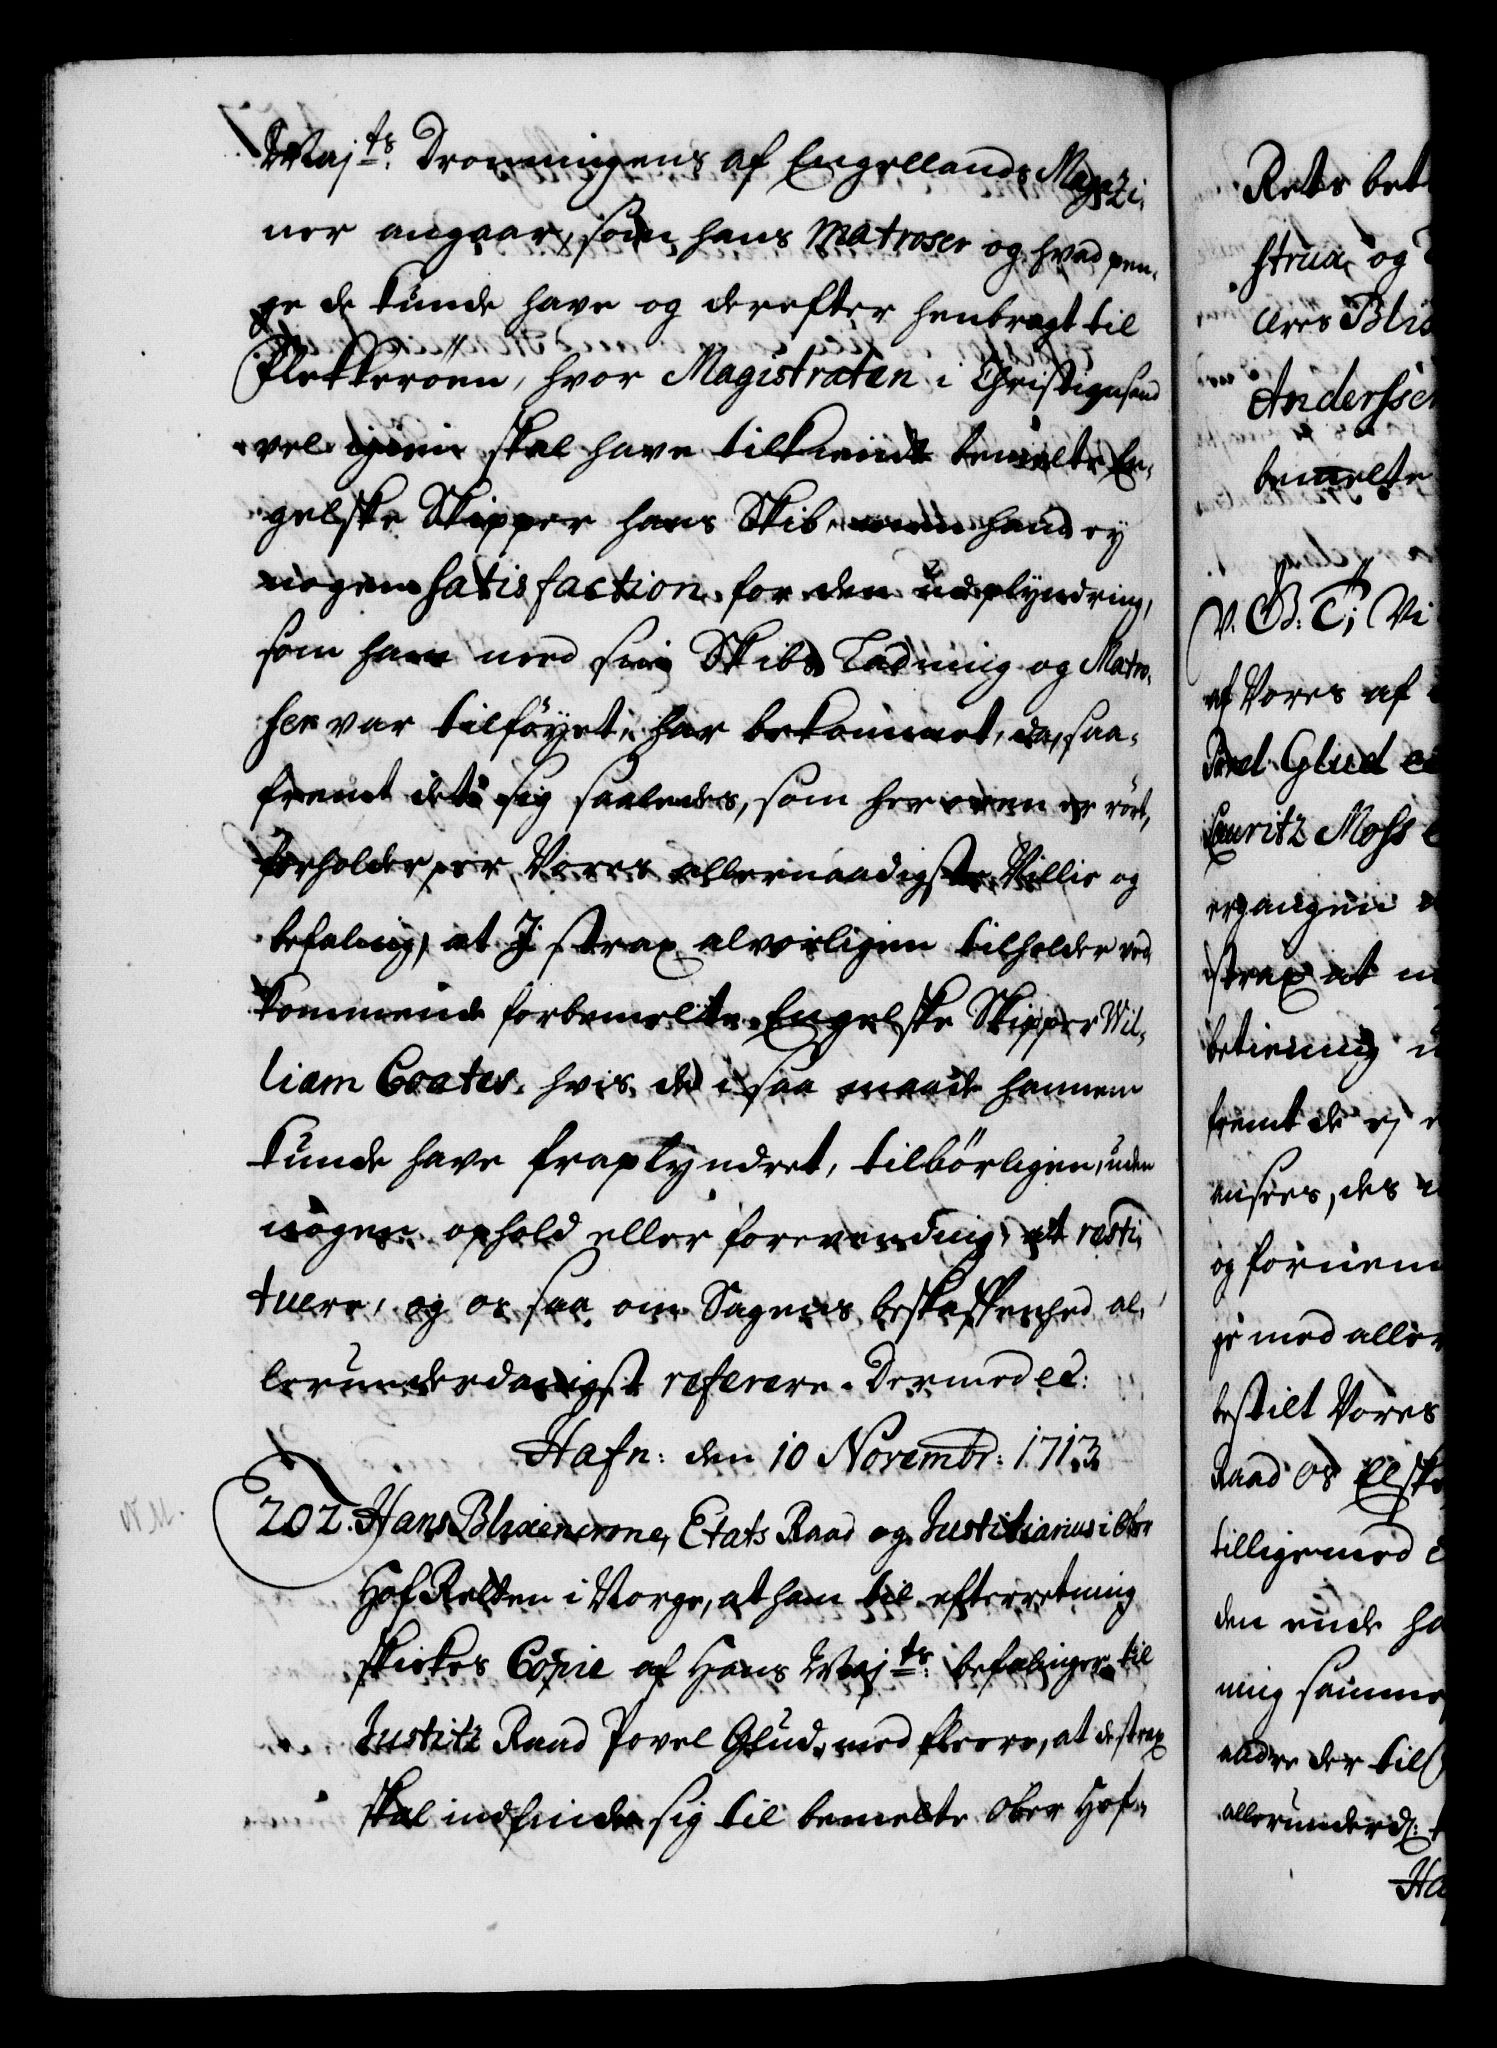 Maj.ts Dronningens af Engellands Magazi-
ner angaar, som hans Matroser og hvad pen-
ge de kunde have og derefter henbragt til
Flekkeröen, hvor Magistraten i Christiansand
vel igien skal have tilkiendt bemelte En-
gelske Skipper hans Skib, men hand ey
nogen satisfaction for den udplyndring,
som ham med sin Skibs Ladning og Matro-
ser var tilföyet, har bekommet, da, saa-
fremt det sig saaledes, som her oven er rört,
forholder, er Vores allernaadigste Villie og
befaling, at I strax alvorligen tilholder ved-
kommende forbemelte Engelske Skipper Wil-
liam Coates, hvis de i saa maade hannem
kunde have fraplyndret, tilbörligen, uden
nogen ophold eller forevending, at resti-
tuere, og os saa om Sagens beskaffenhed al-
lerunderdanigst referere. Dermed ec:
Hafn: den 10 Novembr: 1713.
202. Hans Blixencrone, Etats Raad og Justitiarius i Ober
Hof Retten i Norge, at ham til efterretning
skickes Copie af Hans Maj.ts befalinger til
Justitz Raad Povel Glud, med fleere, at de strax
skal indfinde sig til bemelte Ober Hof-
Rets bet
strux, og
Anderssen
bemelte
V. G: T; Vi
af Vores af
Povel Glud
Lauritz Moss
ergangen
strax at
betiening
fremt de ej
ansees, des
og fornem
ge med aller
bestilt Vores
Raad os Elske
tilligemed
den ende ha
ning samme
andre der til
allerunderd:
Ha